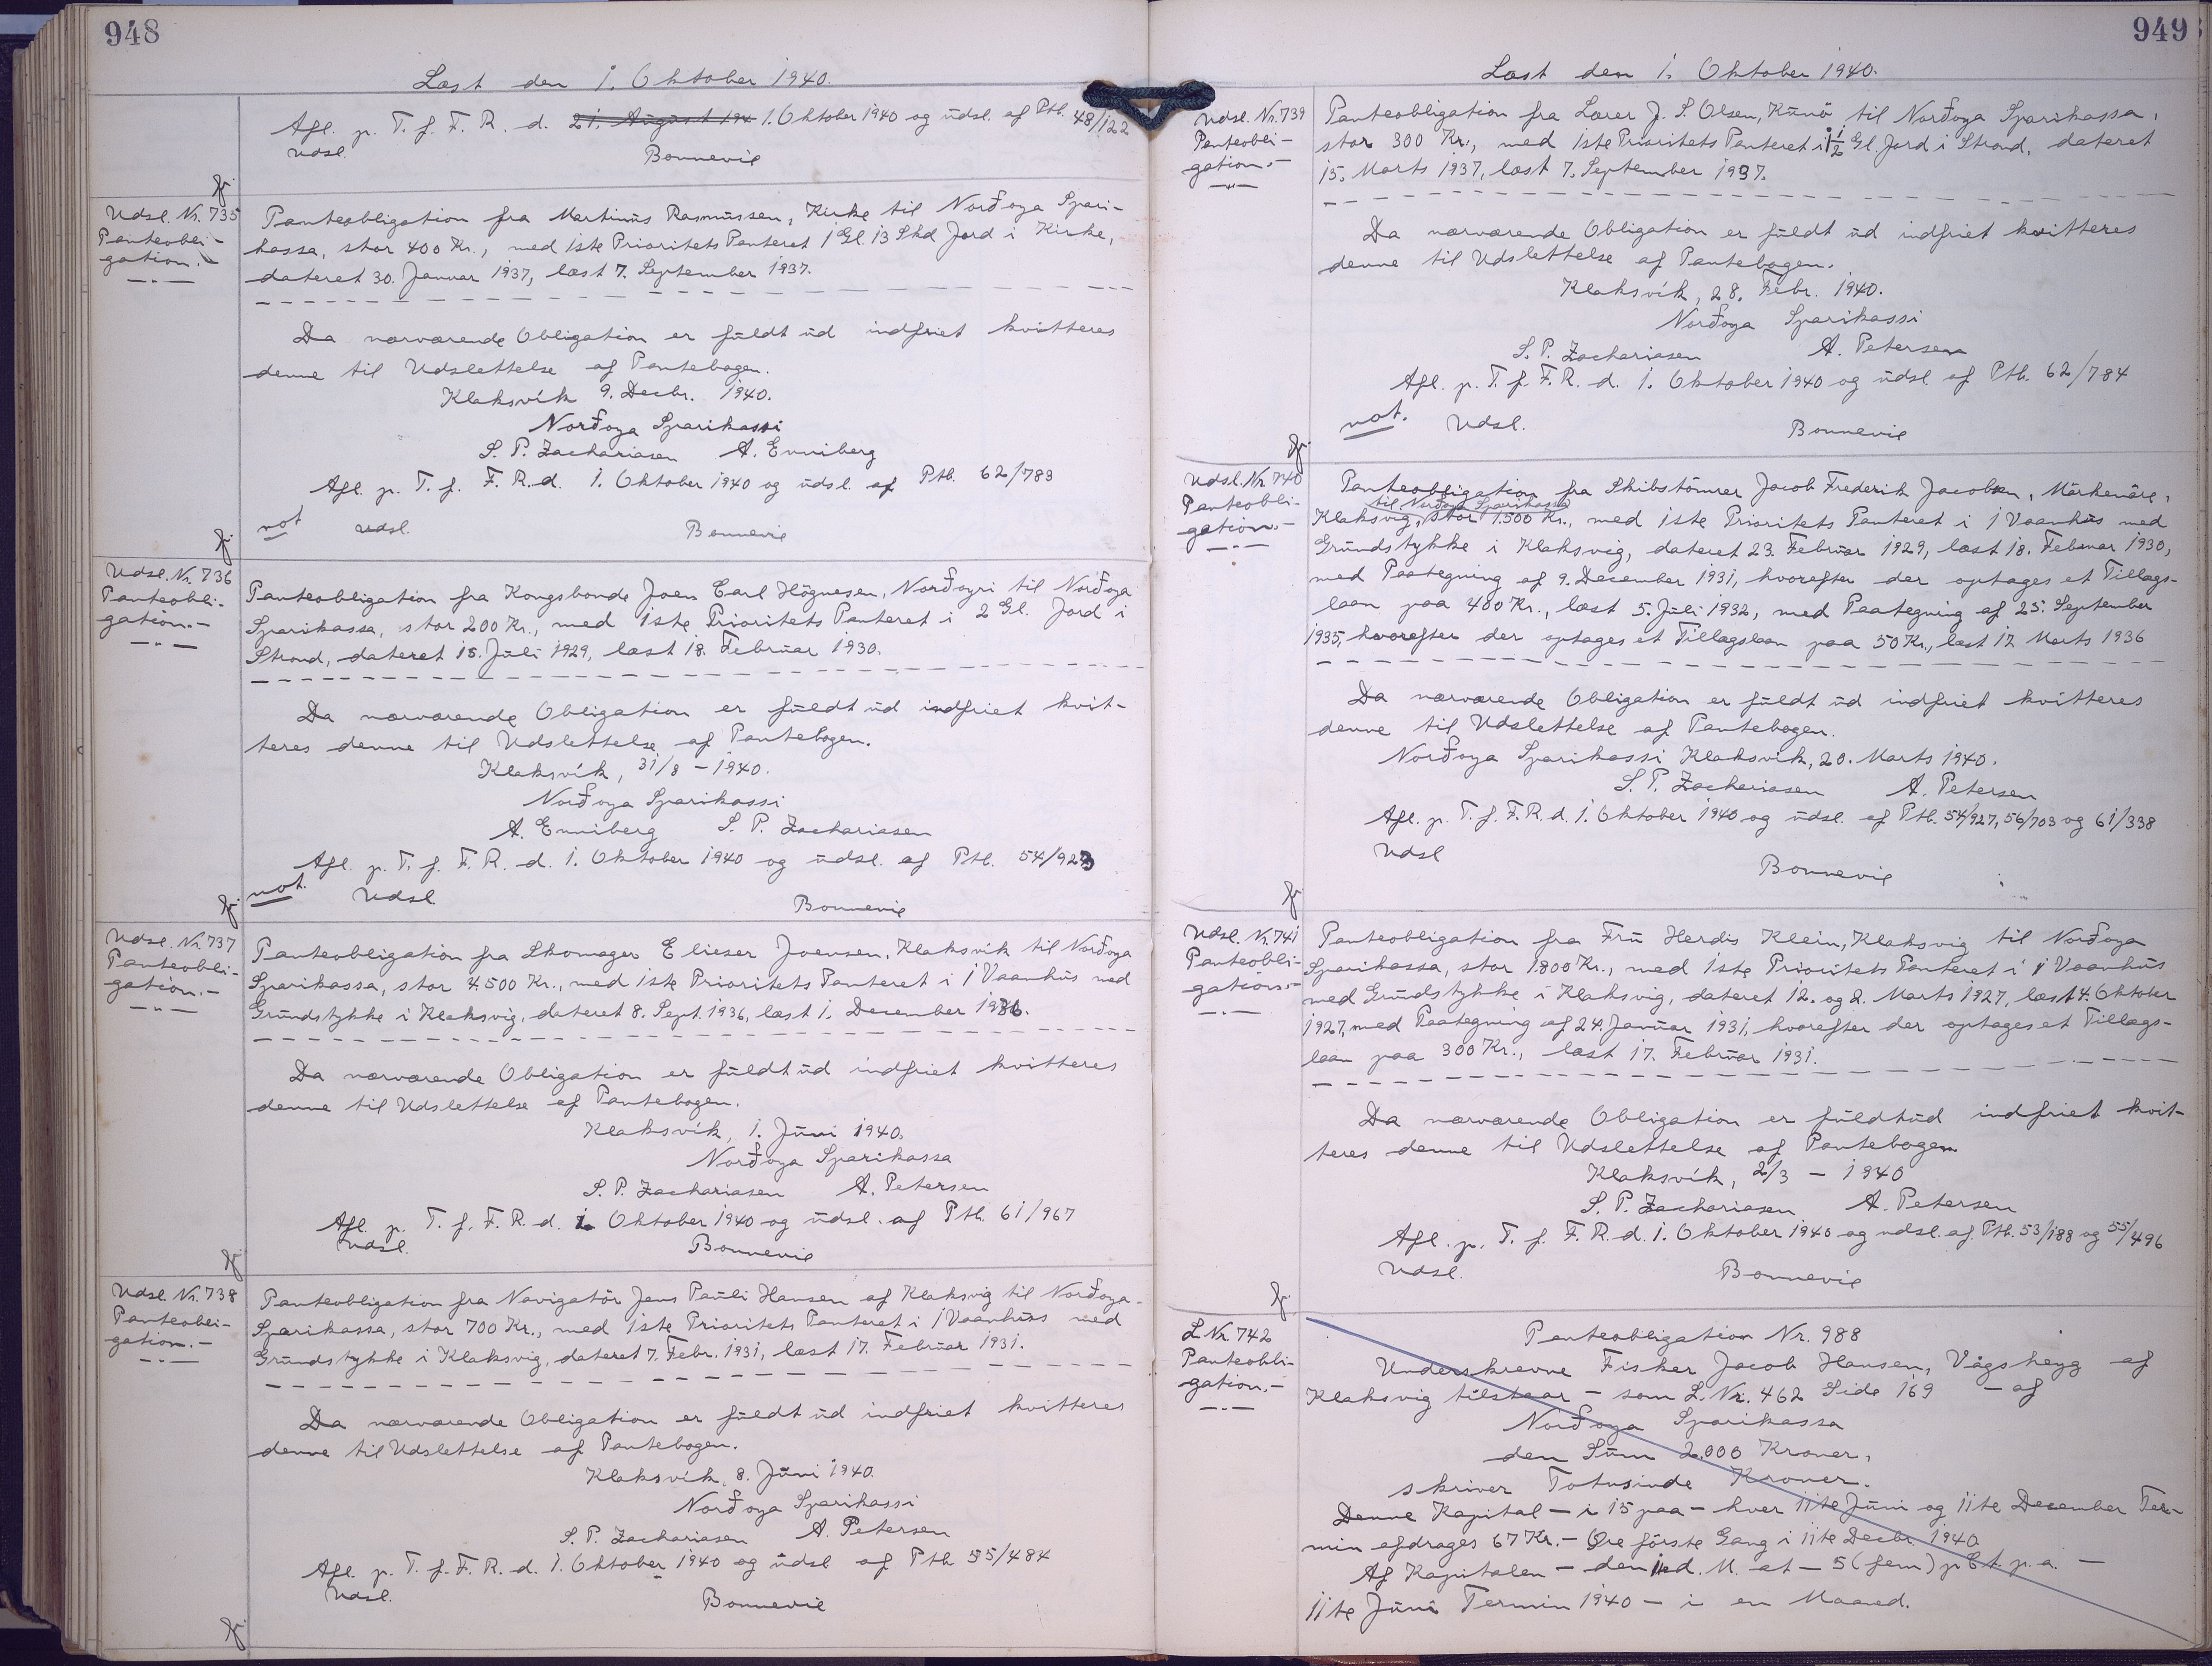 948
Læst den 1. Oktober 1940.
Afl. p. T. f. F. R. d. 21. August 194 1. Oktober 1940 og üdsl. af Ptb. 48/122
Udsl.
Bonnevie
fr.
Udsl. Nr. 735
Panteobli-
gation.-
Panteobligation fra Martinüs Rasmüssen, Kirke til Norðoya Spari-
kassa, stor 400 Kr., med 1ste Prioritets Panteret 1 Gl. 13 Skd Jord i Kirke,
dateret 30. Januar 1937, læst 7. September 1937.
Da nærværende Obligation er füldt üd indfriet kvitteres
denne til Udslettelse af Pantebogen.
Klaksvík 9. Decbr. 1940.
Norðoya Sparikassi
S. P. Zachariasen A. Enniberg
Afl. p. T. f. F. R. d. 1. Oktober 1940 og üdsl. af Ptb. 62/783
not
udsl.
Bonnevie
fr.
Udsl. Nr. 736
Panteobli-
gation.-
Panteobligation fra Kongsbonde Joen Carl Högnesen, Norðoyri til Norðoya
Sparikassa, stor 200 Kr., med 1ste Prioritets Panteret i 2 Gl. Jord i
Strond, dateret 15. Jüli 1929, læst 18. Februar 1930.
Da nærværende Obligation er füldt üd indfriet kvit-
teres denne til Udslettelse af Pantebogen.
Klaksvík, 31/8 - 1940.
Norðoya Sparikassi
A. Enniberg S. P. Zachariasen
Afl. p. T. f. F. R. d. 1. Oktober 1940 og üdsl. af Ptb. 54/923
not.
Udsl
Bonnevie
fr.
Udsl. Nr. 737
Panteobli-
gation.-
Panteobligation fra Skomager Elieser Joensen, Klaksvík til Norðoya
Sparikassa, stor 4.500 Kr., med 1ste Prioritets Panteret i 1 Vaanhüs med
Gründstykke i Klaksvig, dateret 8. Sept. 1936, læst 1. December 1936.
Da nærværende Obligation er füldt üd indfriet kvitteres
denne til Udslettelse af Pantebogen.
Klaksvík, 1. Jüni 1940.
Norðoya Sparikassa
S. P. Zachariasen A. Petersen
Afl. p. T. f. F. R. d. 1. Oktober 1940 og üdsl. af Ptb. 61/967
Udsl.
Bonnevie
fr.
Udsl. Nr. 738
Panteobli-
gation.-
Panteobligation fra Navigatör Jens Paüli Hansen af Klaksvig til Norðoya-
Sparikassa, stor 700 Kr., med 1ste Prioritets Panteret i 1 Vaanhüs med
Gründstykke i Klaksvig, dateret 7. Febr. 1931, læst 17. Februar 1931.
Da nærværende Obligation er füldt üd indfriet kvitteres
denne til Udslettelse af Pantebogen.
Klaksvík, 8. Jüni 1940.
Norðoya Sparikassi
S. P. Zachariasen A. Petersen
Afl. p. T. f. F. R. d. 1. Oktober 1940 og üdsl af Ptb 55/484
Udsl.
Bonnevie
fr.
949
Læst den 1. Oktober 1940.
Udsl. Nr. 739
Panteobli-
gation.-
Panteobligation fra Lærer J. S. Olsen, Künö til Norðoya Sparikassa,
stor 300 Kr., med 1ste Prioritets Panteret i 1 1/2 Gl. Jord i Strond, dateret
15. Marts 1937, læst 7. September 1937.
Da nærværende Obligation er füldt üd indfriet kvitteres
denne til Udslettelse af Pantebogen.
Klaksvík, 28. Febr. 1940.
Norðoya Sparikassi
S. P. Zachariasen A. Petersen
Afl. p. T. f. F. R. d. 1. Oktober 1940 og üdsl. af Ptb. 62/784
not.
Udsl.
Bonnevie
fr.
Udsl. Nr. 740
Panteobli-
gation.-
Panteobligation fra Skibstömrer Jacob Frederik Jacobsen, Märkenäre,
til Norðoya Sparikassa
Klaksvig, stor 1.500 Kr., med 1ste Prioritets Panteret i 1 Vaanhüs med
Gründstykke i Klaksvig, dateret 23. Februar 1929, læst 18. Februar 1930,
med Paategning af 9. December 1931, hvorefter der optages et Tillægs-
laan paa 400 Kr., læst 5. Jüli 1932, med Paategning af 25. September
1935, hvorefter der optages et Tillægslaan paa 50 Kr., læst 17. Marts 1936
Da nærværende Obligation er füldt üd indfriet kvitteres
denne til Udslettelse af Pantebogen.
Norðoya Sparikassi Klaksvík, 20. Marts 1940.
S. P. Zachariasen A. Petersen
Afl. p. T. f. F. R. d. 1. Oktober 1940 og üdsl. af Ptb. 54/927, 56/703 og 61/338
Udsl
Bonnevie
fr.
Udsl. Nr. 741
Panteobli-
gation.-
Panteobligation fra Frü Herdis Klein, Klaksvig til Norðoya
Sparikassa, stor 1800 Kr., med 1ste Prioritets Panteret i 1 Vaanhüs
med Gründstykke i Klaksvig, dateret 12. og 2. Marts 1927, læst 4. Oktober
1927, med Paategning af 24. Januar 1931, hvorefter der optages et Tillægs-
laan paa 300 Kr., læst 17. Februar 1931.
Da nærværende Obligation er füldt üd indfriet kvit-
teres denne til Udslettelse af Pantebogen
Klaksvík, 2/3 - 1940
S. P. Zachariasen A. Petersen
Afl. p. T. f. F. R. d. 1. Oktober 1940 og udsl. af Ptb. 53/188 og 55/496
Udsl.
Bonnevie
fr.
L Nr. 742
Panteobli-
gation.-
Panteobligation Nr. 988
Underskrevne Fisker Jacob Hansen, Vágsheyg af
Klaksvig tilstaar - som L. Nr. 462 Side 169 - af
Norðoya Sparikassa
den Süm 2.000 Kroner,
skriver Totusinde Kroner.
Denne Kapital - i 15 paa - hver 11te Jüni og 11te December Ter-
min afdrages 67 Kr. - Øre förste Gang i 11te Decbr. 1940
Af Kapitalen - den d. M. at - 5 (fem) p Ct. p. a. -
11te Jüni Termin 1940 - i en Maaned.